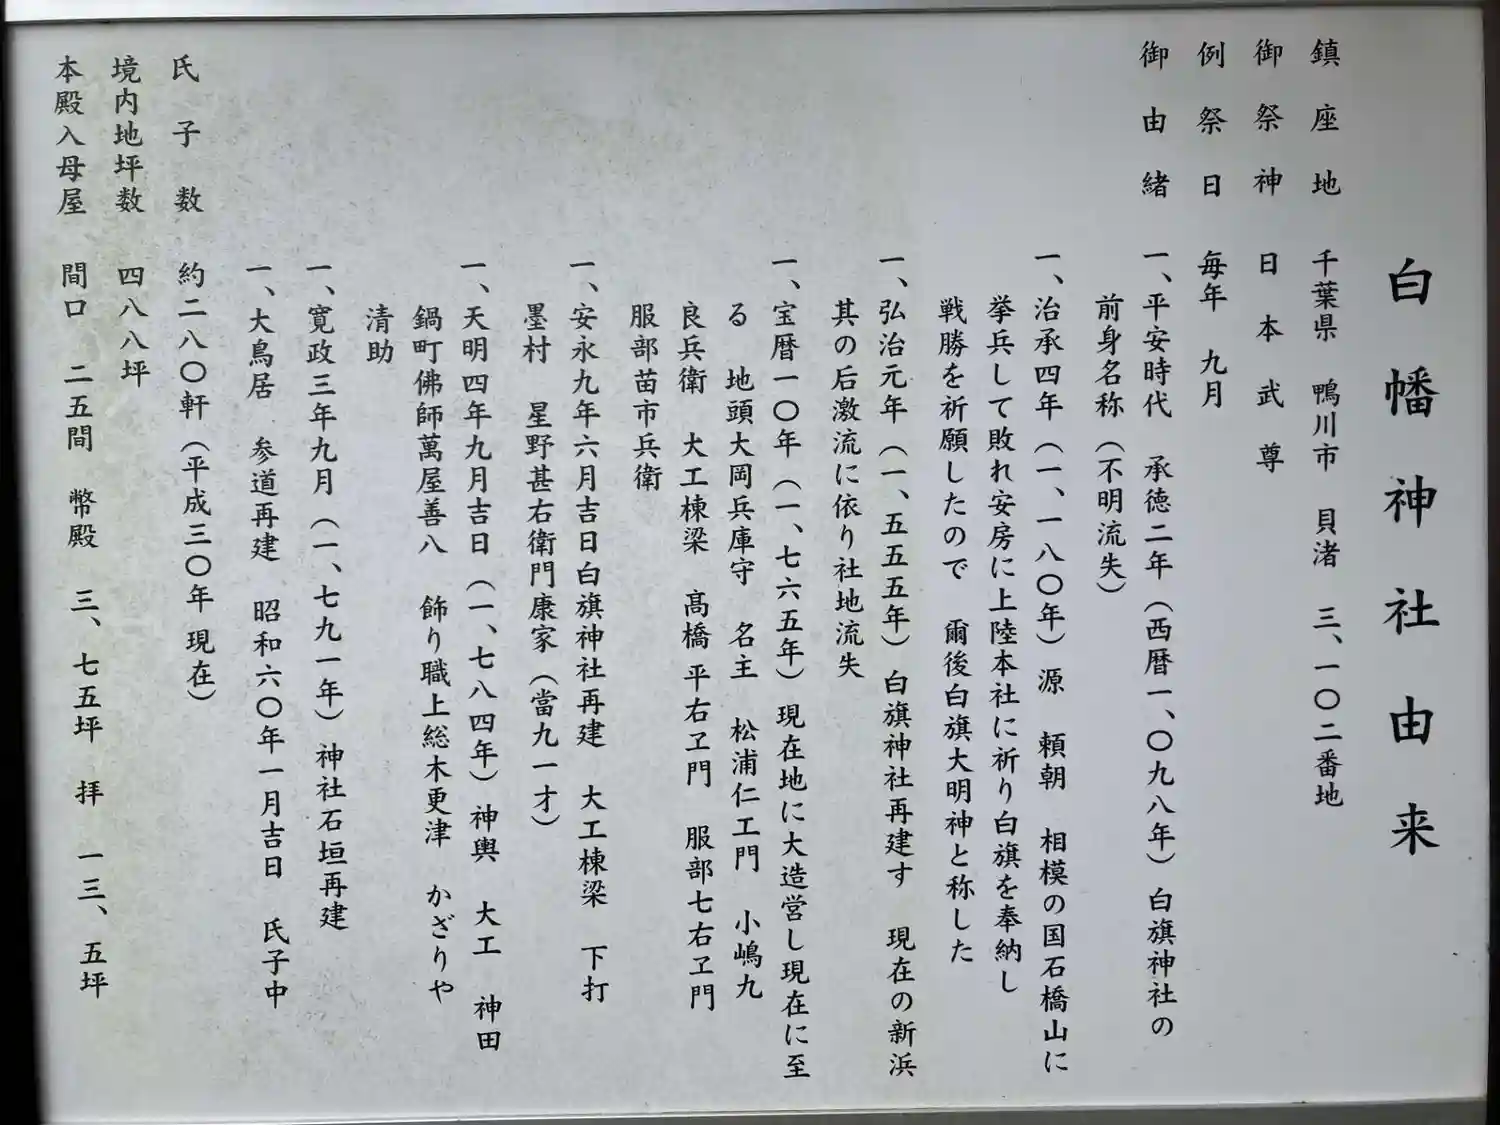 白幡神社由来
鎮座地　千葉県　鴨川市　貝渚　三、一〇二番地
御祭神　日本武尊
例祭日　毎年　九月
御由緒　一、平安時代　承徳二年（西暦一、〇九八年）白旗神社の
前身名称（不明流失）
一、治承四年（一、一八〇年）源　頼朝　相模の国石橋山に
挙兵して敗れ安房に上陸本社に祈り白旗を奉納し
戦勝を祈願したので　爾後白旗大明神と称した
一、弘治元年（一、五五五年）白旗神社再建す　現在の新浜
其の后激流に依り社地流失
一、宝暦一〇年（一、七六五年）現在地に大造営し現在に至
る　地頭大岡兵庫守　名主　松浦仁工門　小嶋九
良兵衛　大工棟梁　髙橋平右ヱ門　服部七右ヱ門
服部苗市兵衛
一、安永九年六月吉日白旗神社再建　大工棟梁　下打
墨村　星野甚右衛門康家（當九一才）
一、天明四年九月吉日（一、七八四年）神輿　大工　神田
鍋町佛師萬屋善八　飾り職上総木更津　かざりや
清助
一、寛政三年九月（一、七九一年）神社石垣再建
一、大鳥居　参道再建　昭和六〇年一月吉日　氏子中
氏子数　約二八〇軒（平成三〇年現在）
境内地坪数　四八八坪
本殿入母屋　間口　二五間　幣殿　三、七五坪　拝　一三、五坪